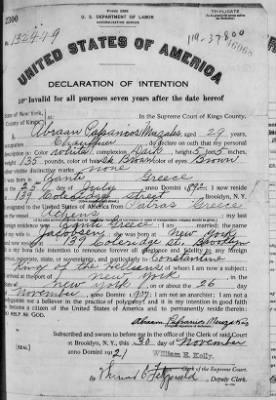 2300
U. S. DEPARTMENT OF LABOR
TRIPLICATE
No. 132449
UNITED STATES OF AMERICA
DECLARATION OF INTENTION
Invalid for all purposes seven years after the date hereof
State of New York,
County of Kings,
In the Supreme Court of Kings County.
I, aged 29 years,
occupation Chauffeur, do declare on oath that my personal
description is: Color white, complexion Dark, height 5 feet 5 inches,
weight 135 pounds, color of hair Dk Brown, color of eyes Brown
other visible distinctive marks none
I was born in Greece
on the 25 day of July, anno Domini 1892; I now reside
at 139 Coleridge Street, Brooklyn, N.Y.
I emigrated to the United States of America from Greece
my last
foreign residence was Athens Greece
she was born at New York
139 Coleridge St. Brooklyn
It is my bona fide intention to renounce forever all allegiance and fidelity to any foreign
prince, potentate, state, or sovereignty, and particularly to Constantine
King of the Hellenes, of whom I am now a subject;
I arrived at the port of New York, in the
State of New York, on or about the 26 day
of November, anno Domini; I am not an anarchist; I am not a
polygamist nor a believer in the practice of polygamy; and it is my intention in good faith
to become a citizen of the United States of America and to permanently reside therein:
SO HELP ME GOD.
Subscribed and sworn to before me in the office of the Clerk of said Court
at Brooklyn, N. Y., this 30 day of November
[SEAL] anno Domini 1921
William E. Kelly,
Clerk of the Supreme Court.
By Fitzgerald, Deputy Clerk.